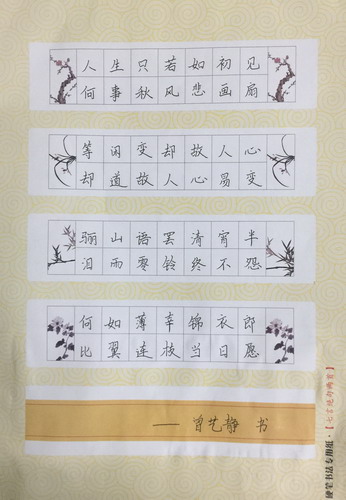 人生只若如初见
何事秋风悲画扇
等闲变却故人心
却道故人心易变
骊山语罢清宵半
泪雨零铃终不怨
何如薄幸锦衣郎
比翼连枝当日愿
—— 曾艺静 书
硬笔书法专用纸·【七言绝句两首】